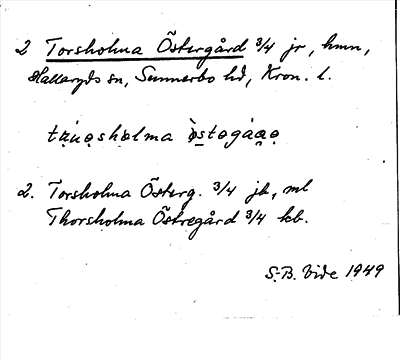 2 Torsholma Östergård 3/4 jr, hmn,
Hallaryds sn, Sunnerbo hd, Kron. l.
2. Torsholma Österg. 3/4 jb, ml
Thorsholma Östregård 3/4 kb.
S.B. Vide 1949